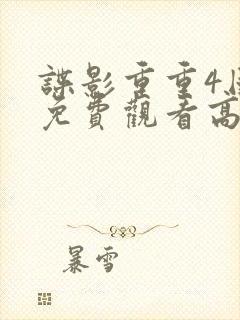 諜影重重4
免費觀看高
暴雪